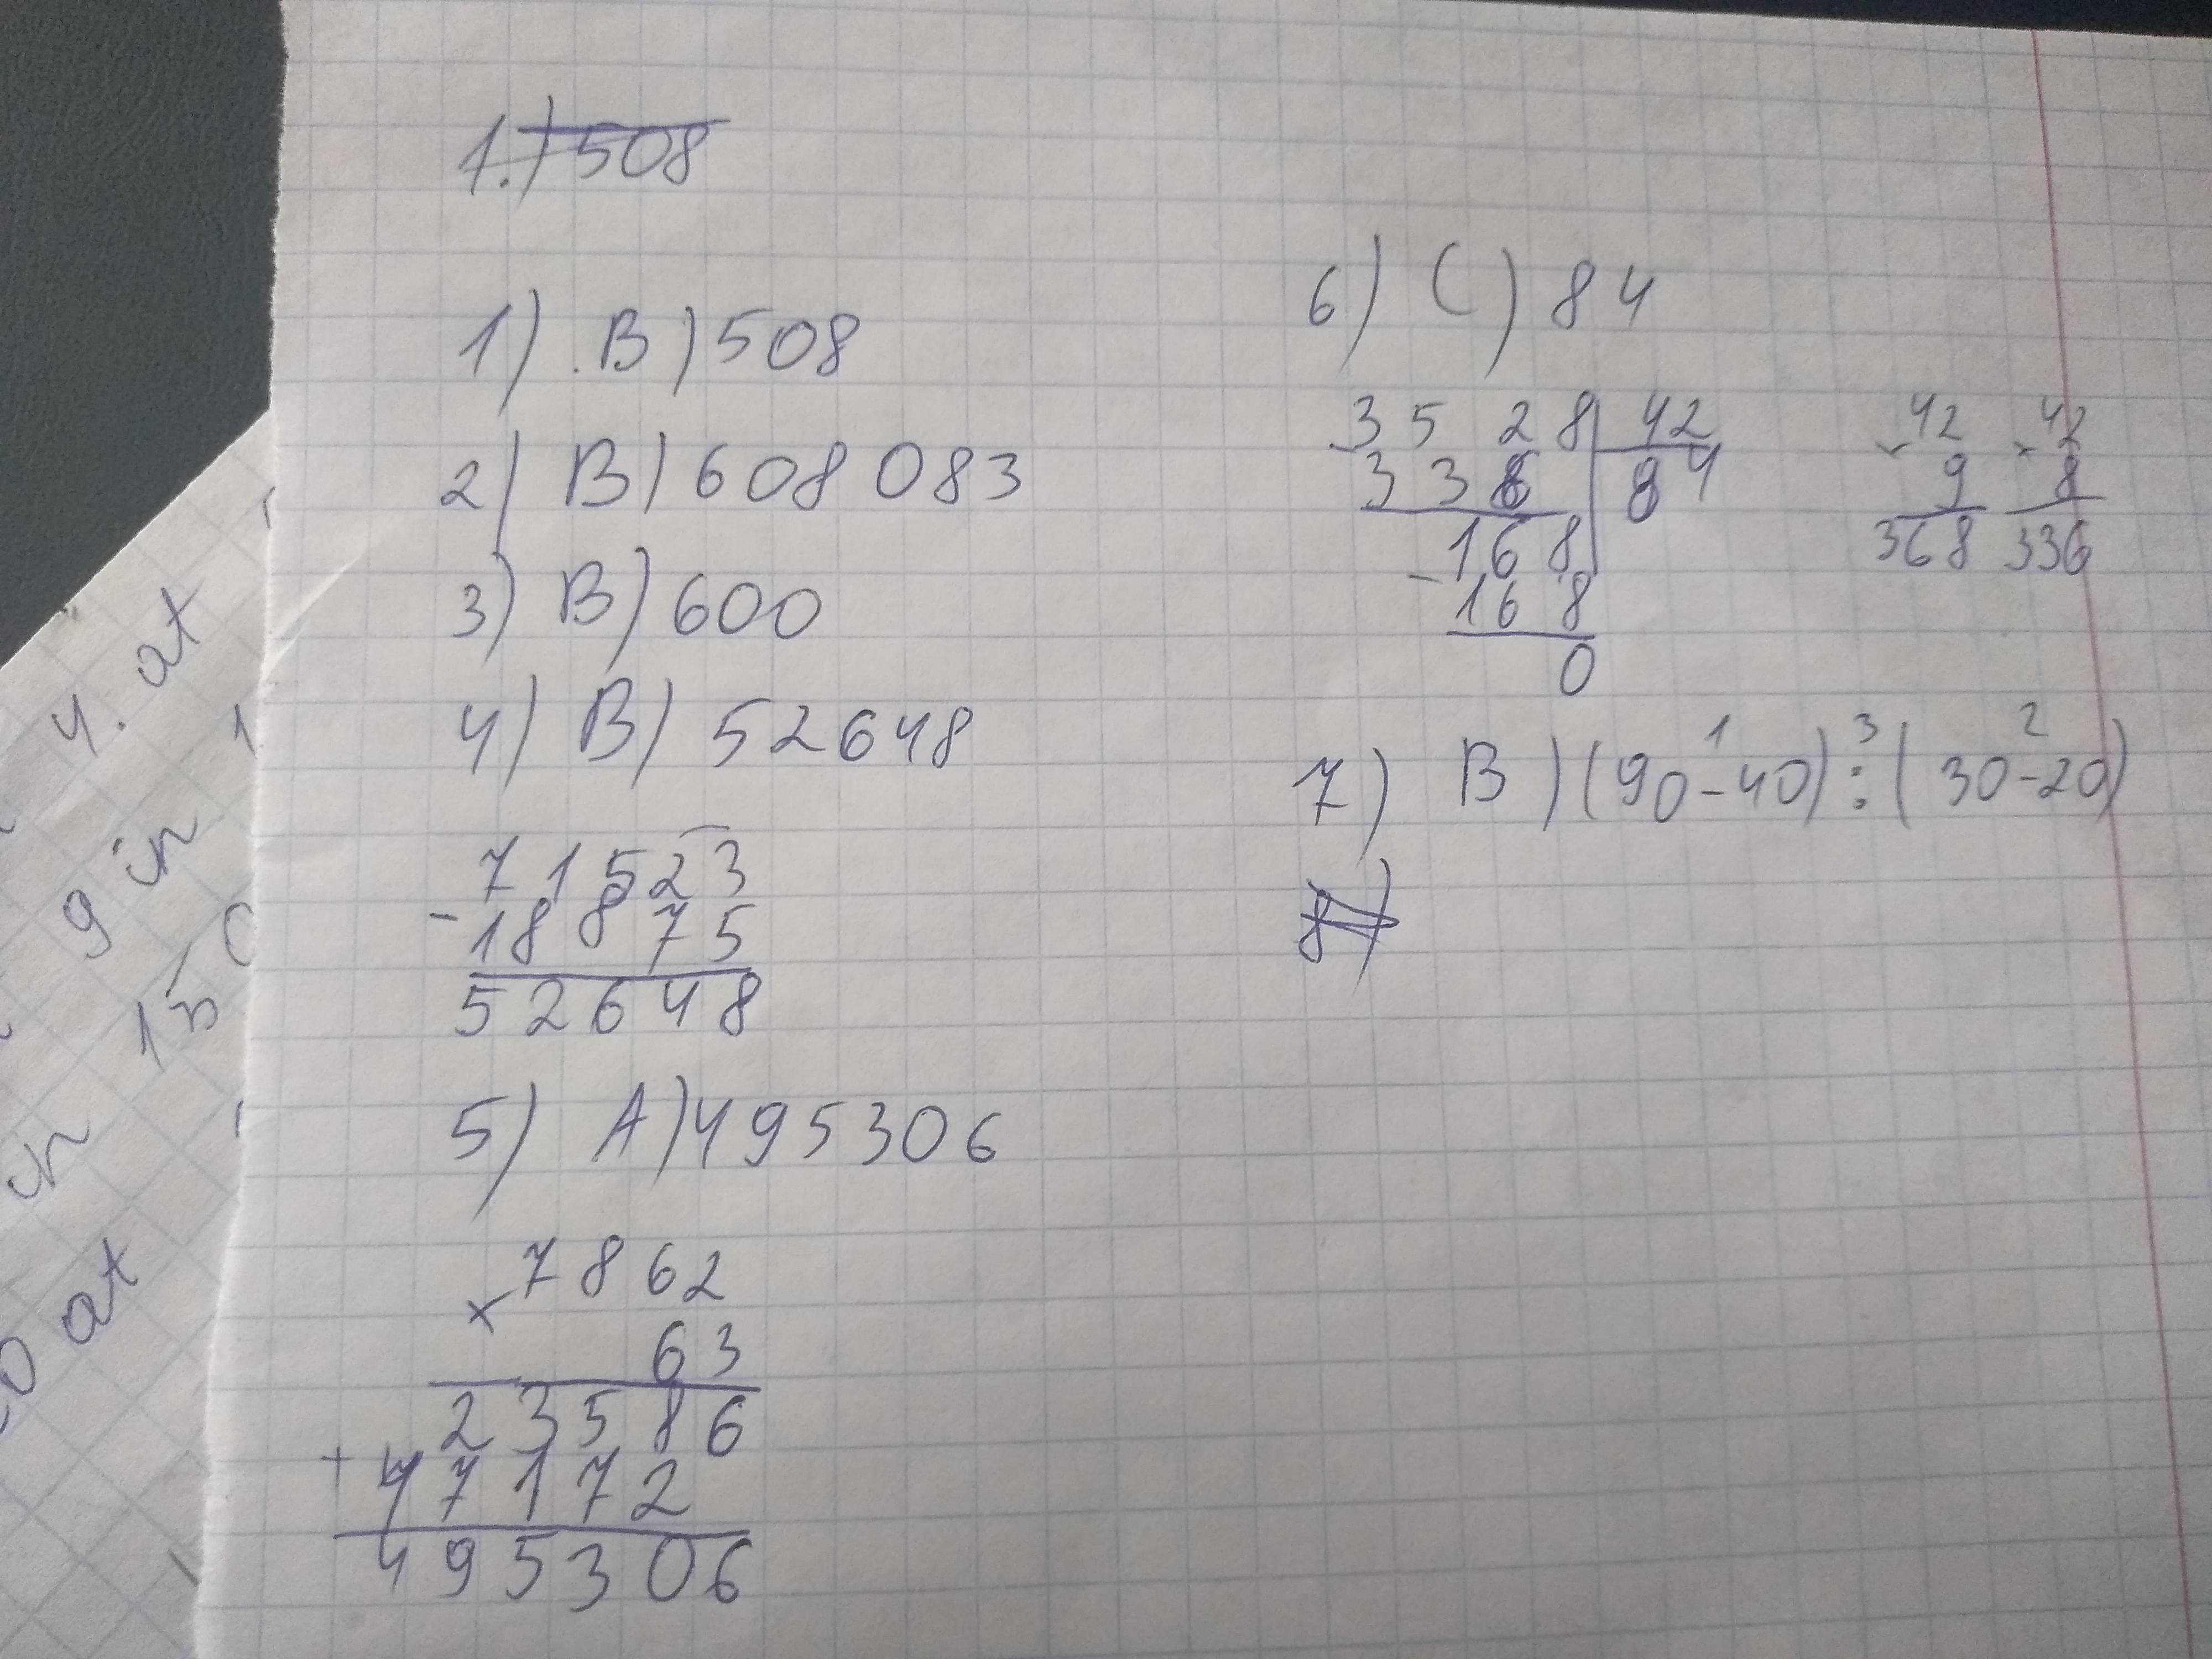 1.) 508
1) B) 508
2) B) 608 083
3) B) 600
4) B) 52648
71523
- 18875
52648
5) A) 495306
7862
x 63
23586
+ 47172
495306
6) C) 84
3528 | 42
- 336 | 84
168
- 168
0
42
x 9
368
42
x 8
336
1 3 2
7) B) (90-40) : (30-20)
8)
4. at
9 in
15
in
0 at